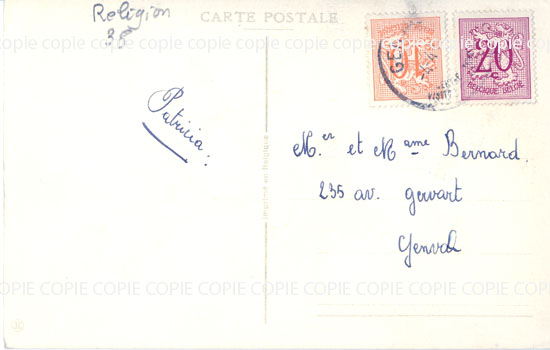 Religion
38
CARTE POSTALE
GE
10
20
C
BELGIQUE BELGIË
Patricia.
Mr. et Mame Bernard.
235 av. gevart
Genval
Imprimé en Belgique
COPIE COPIE COPIE COPIE COPIE COPIE COPIE COPIE COPIE
COPIE COPIE COPIE COPIE COPIE COPIE COPIE COPIE COPIE
COPIE COPIE COPIE COPIE COPIE COPIE COPIE COPIE COPIE